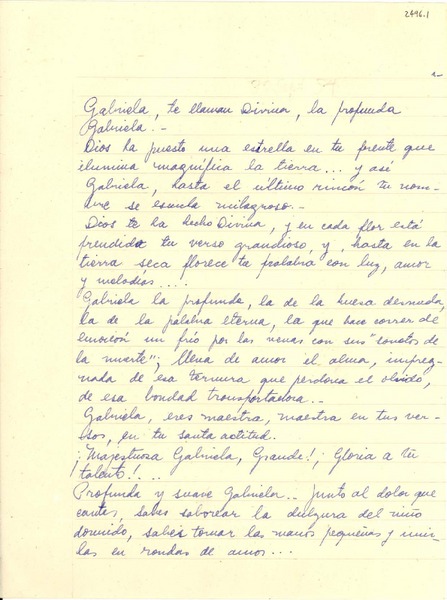 2496.1
1-
Gabriela, te llaman Divina, la profunda
Gabriela.-
Dios ha puesto una estrella en tu frente que
ilumina magnífica la tierra... y así
Gabriela, hasta el último rincón tu nom-
bre se escucha milagroso.-
Dios te ha hecho Divina, y en cada flor está
prendido tu verso grandioso, y, hasta en la
tierra seca florece tu palabra con luz, amor
y melodías....
Gabriela la profunda, la de la huesa desnuda,
la de la palabra eterna, la que hace correr de
emoción un frío por las venas con sus "sonetos de
la muerte"; llena de amor el alma, impreg-
nada de esa ternura que perdona el olvido,
de esa bondad transportadora.-
Gabriela, eres maestra, maestra en tus ver-
sos, en tu santa actitud.
¡Majestuosa Gabriela, Grande!, ¡Gloria a tu
talento!...
Profunda y suave Gabriela... junto al dolor que
cantes, sabes saborear la dulzura del niño
dormido, sabes tomar las manos pequeñas y
las en rondas de amor...